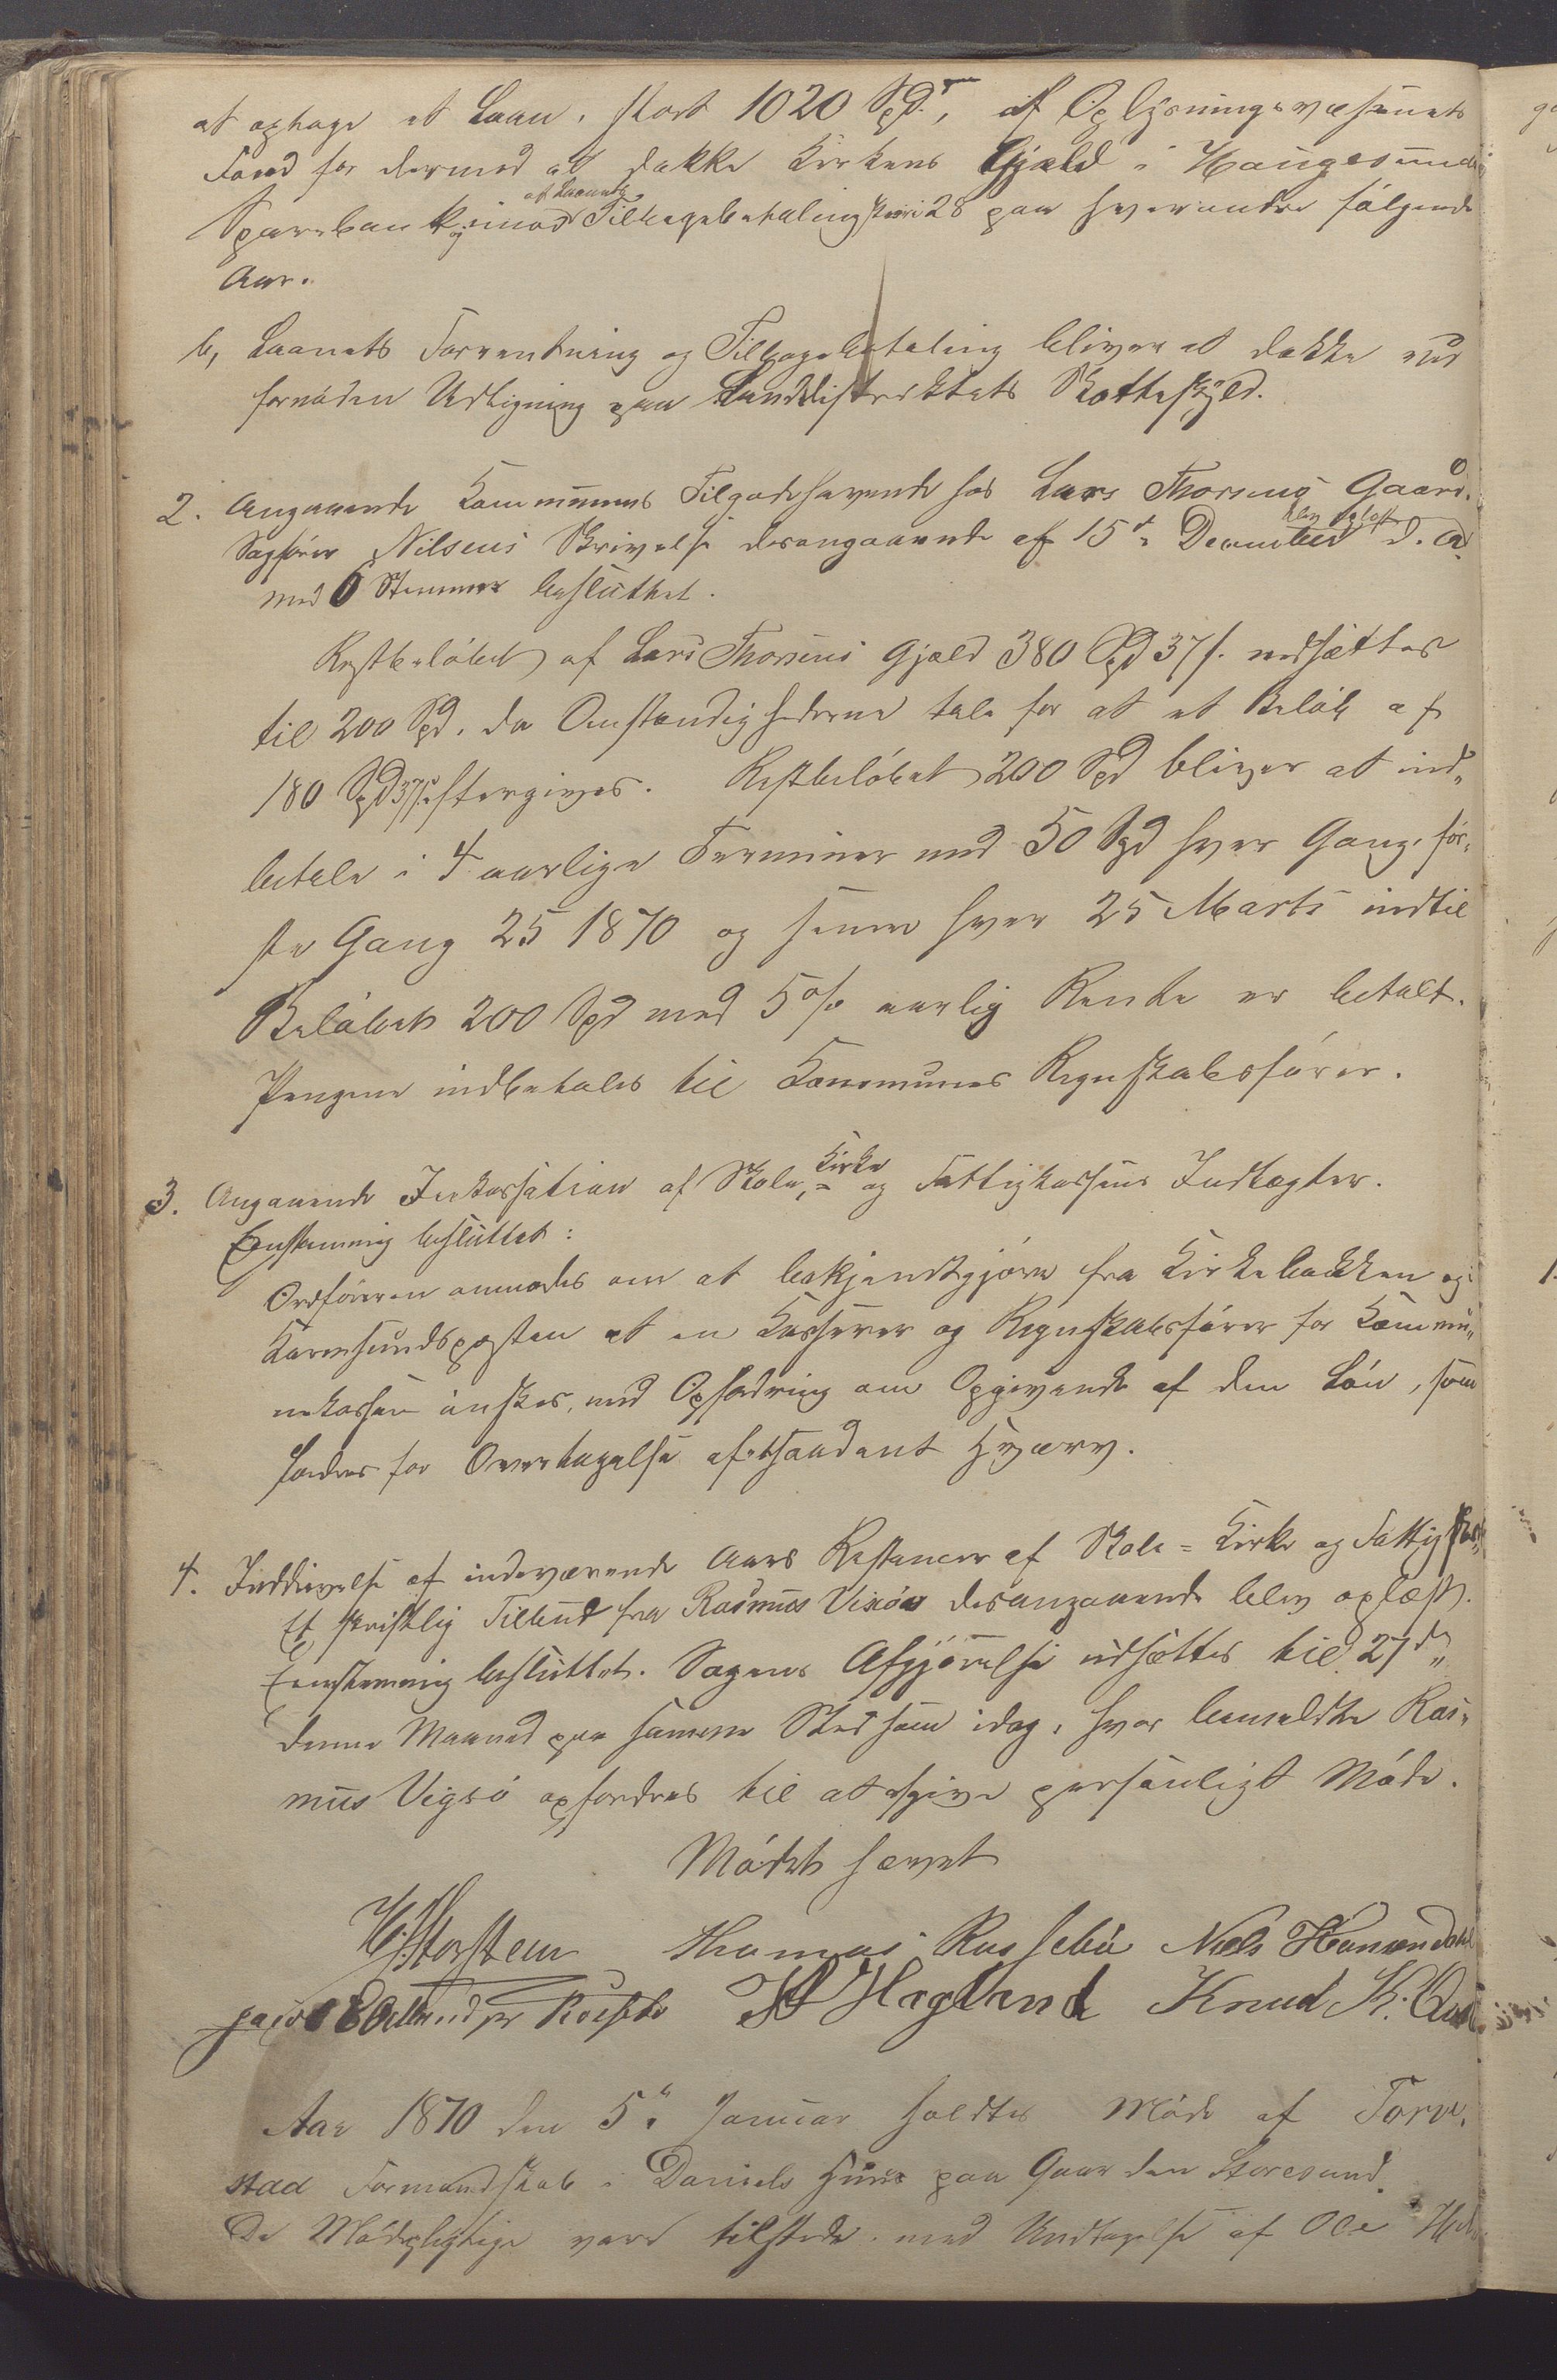 at optage et Laan, stort 1020 Spd., af Oplysningsvæsenets
Fond for dermed at dække Kirkens Gjæld i Haugesunds
Sparebank imod af Laanets Tilbagebetaling 28 paa hverandre følgende
Aar.
b, Laanets Forrentning og Tilbagebetaling bliver at dække ved
fornøden Udligning paa Landdistriktets Skatteskyld.
2. Angaaende Kommunens Tilgodehavende hos Lars Thorsens Gaard.
Sagfører Nilsens Skrivelse desangaaende af 15de December d. A. blev oplæst
med 6 Stemmer besluttet.
Restbeløbet af Lars Thorsens Gjæld 380 Spd 37 s. nedsættes
til 200 Spd. da Omstændighederne tale for at et Beløb af
180 Spd 37 s. eftergives. Restbeløbet 200 Spd bliver at ind-
betale i 4 aarlige Terminer med 50 Spd hver Gang, før-
ste Gang 25 1870 og senere hver 25 Marts indtil
Beløbet 200 Spd med 5 % aarlig Rente er betalt.
Pengene indbetales til Kommunens Regnskabsfører.
3. Angaaende Inkassation af Skole-, Kirke og Fattigkassens Indtægter.
Enstemmig besluttet:
Ordføreren anmodes om at bekjendtgjøre fra Kirkebakken og i
Karmsundsposten at en Kasserer og Regnskabsfører for Kommu-
nekassen ønskes, med Opfordring om Opgivende af den Løn, som
fordres for Overtagelse af et saadant Hværv.
4. Inddrivelse af indeværende Aars Restancer af Skole- Kirke og Fattig
Et skriftlig Tilbud fra Rasmus Vixøe desangaaende blev oplæst.
Eenstemmig besluttet. Sagens Afgjørelse udsættes til 27de
denne Maaned paa samme Sted som idag, hvor bemeldte Ras-
mus Vigsø opfordres til at give personligt Møde.
Mødet hævet
Storstein Thomas Rossebø Niels Hansen Dahl
E Østhus pr Rossebø Hagland Knud K.
Aar 1870 den 5te Januar holdtes Møde af Torve-
stad Formandskab i Daniels Huus paa Gaarden Storesund.
De Mødepligtige vare tilstede, med Undtagelse af Ole